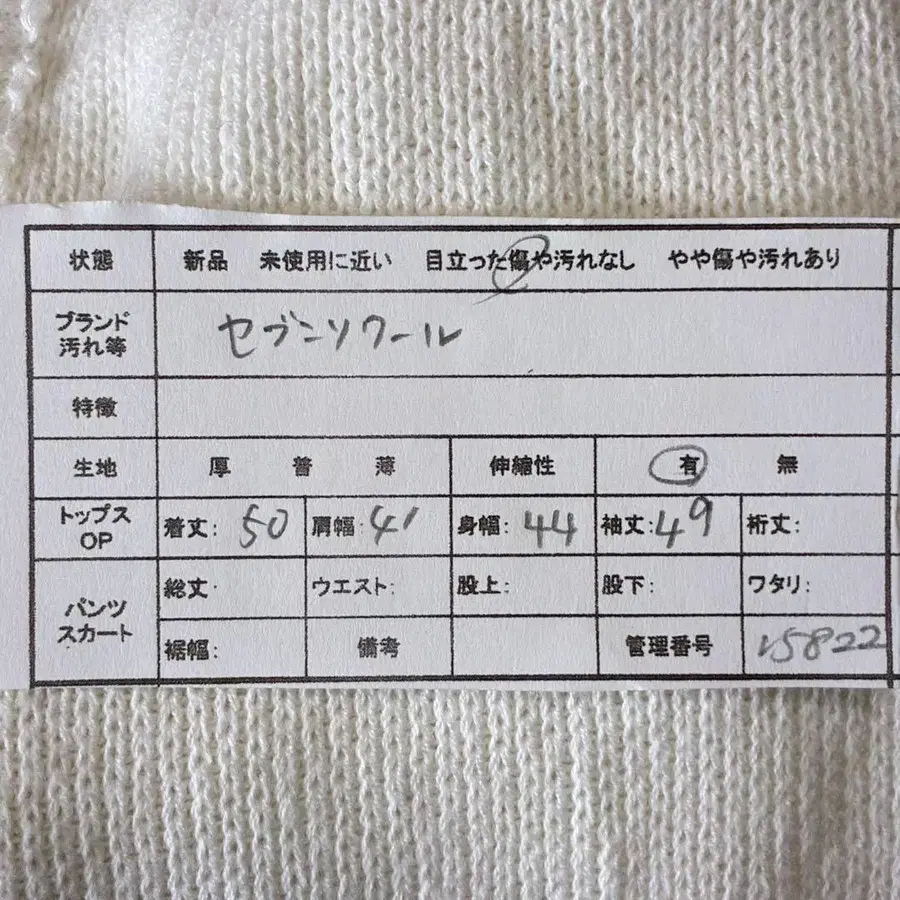 状態 新品 未使用に近い 目立った傷や汚れなし やや傷や汚れあり
ブランド
汚れ等
セブンソワール
特徴
生地 厚 普 薄 伸縮性 有 無
トップス
OP
着丈: 50 肩幅: 41 身幅: 44 袖丈: 49 裄丈:
パンツ
スカート
総丈: ウエスト: 股上: 股下: ワタリ:
裾幅: 備考 管理番号 15822